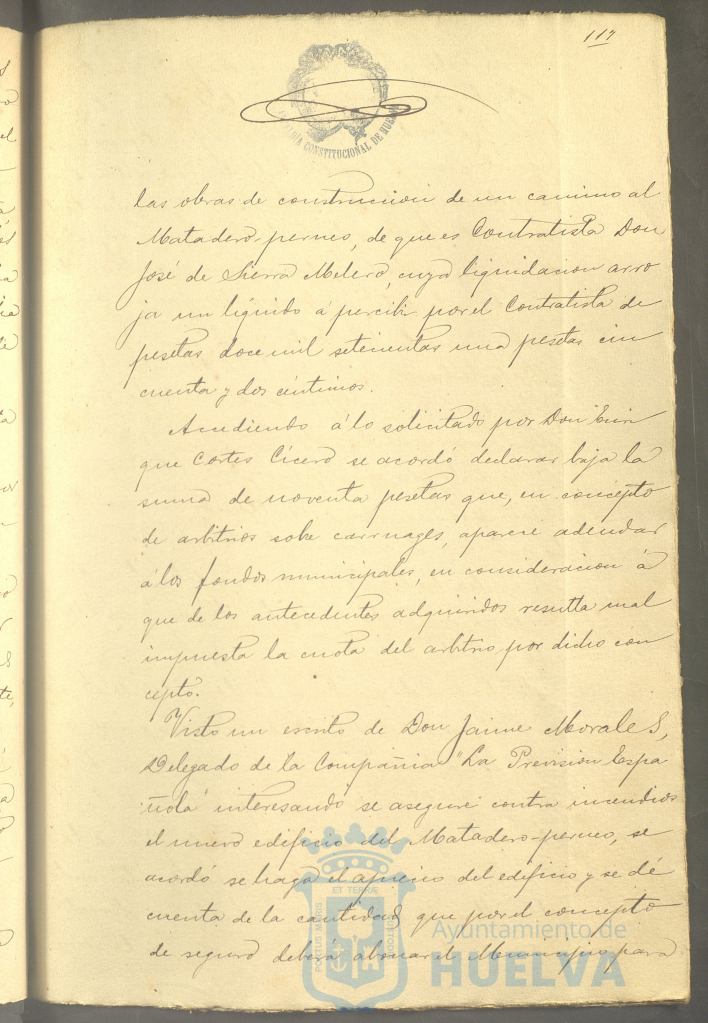 117
ALCALDIA CONSTITUCIONAL DE HUELVA
las obras de construccion de un camino al
Matadero-perneo, de que es Contratista Don
José de Sierra Melero, cuya liquidacion arro
ja un líquido á percibir por el Contratista de
pesetas doce mil setecientas una pesetas cin
cuenta y dos céntimos.
Accediendo á lo solicitado por Don Enri
que Cortes Cícero se acordó declarar baja la
suma de noventa pesetas que, en concepto
de arbitrios sobre carruages, aparece adeudar
á los fondos municipales, en consideracion á
que de los antecedentes adquiridos resulta mal
impuesta la cuota del arbitrio por dicho con
cepto.
Visto un escrito de Don Jaime Morales,
Delegado de la Compañia "La Prevision Espa
ñola" interesando se asegure contra incendios
el nuevo edificio del Matadero-perneo, se
acordó se haga el aprecio del edificio y se dé
cuenta de la cantidad que por el concepto
de seguro deberá abonar el Municipio para
PORTUS MARIS
ET TERRÆ
CUSTODIA
Ayuntamiento de
HUELVA